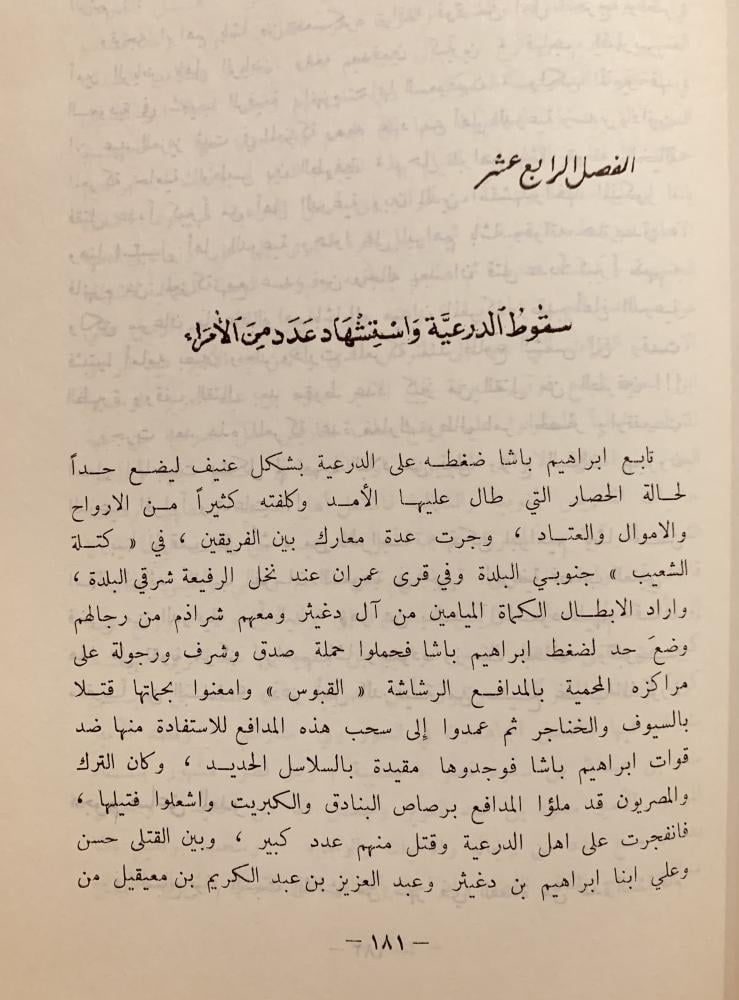 الفصل الرابع عشر
سقُوطُ الدرعيَّة وَاسْتِشْهَاد عَدَد مِنَ الأُمَرَاء
تابع ابراهيم باشا ضغطه على الدرعية بشكل عنيف ليضع حداً
لحالة الحصار التي طال عليها الأمد وكلفته كثيراً من الارواح
والاموال والعتاد ، وجرت عدة معارك بين الفريقين ، في « كتلة
الشعيب » جنوبي البلدة وفي قرى عمران عند نخل الرفيعة شرقي البلدة ،
واراد الابطال الكماة الميامين من آل دغيثر ومعهم شراذم من رجالهم
وضعَ حد لضغط ابراهيم باشا فحملوا حملة صدق وشرف ورجولة على
مراكزه المحمية بالمدافع الرشاشة « القبوس » وامعنوا بحماتها قتلا
بالسيوف والخناجر ثم عمدوا إلى سحب هذه المدافع للاستفادة منها ضد
قوات ابراهيم باشا فوجدوها مقيدة بالسلاسل الحديد ، وكان الترك
والمصريون قد ملؤا المدافع برصاص البنادق والكبريت واشعلوا فتيلها ،
فانفجرت على اهل الدرعية وقتل منهم عدد كبير ، وبين القتلى حسن
وعلي ابنا ابراهيم بن دغيثر وعبد العزيز بن عبد الكريم بن معيقيل من
– ١٨١ –